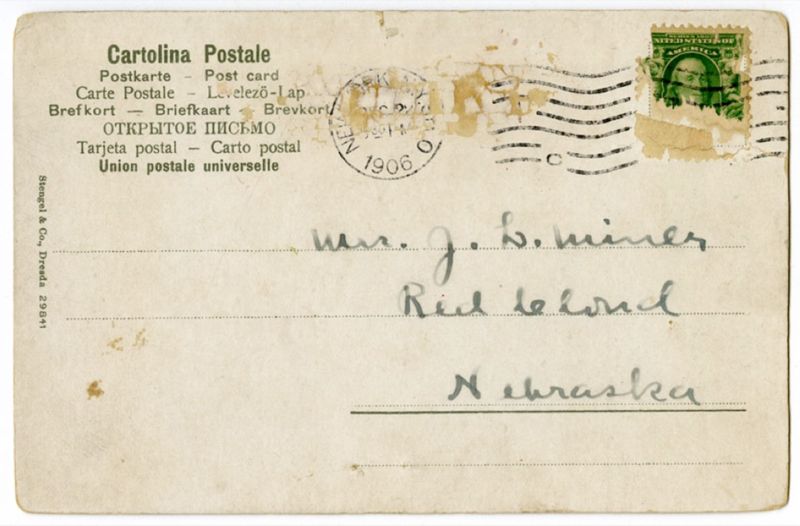 Cartolina Postale
Postkarte – Post card
Carte Postale – Levelező-Lap
Brefkort – Briefkaart – Brevkort
ОТКРЫТОЕ ПИСЬМО
Tarjeta postal – Carto postal
Union postale universelle
Stengel & Co., Dresda 29841
NEW YORK, N.Y. STA. O
1906
UNITED STATES OF
AMERICA
Mrs. J. L. Miner
Red Cloud
Nebraska